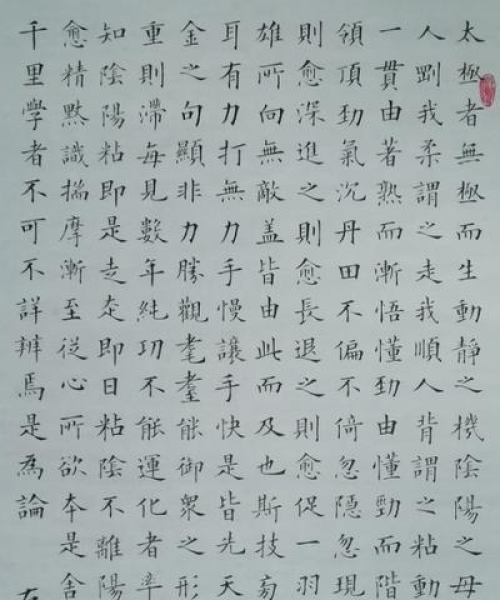 太極者無極而生動靜之機陰陽之母
人剛我柔謂之走我順人背謂之粘動
一貫由著熟而漸悟懂勁由懂勁而階
領頂勁氣沉丹田不偏不倚忽隱忽現
則愈深進之則愈長退之則愈促一羽
雄所向無敵蓋皆由此而及也斯技旁
耳有力打無力手慢讓手快是皆先天
金之句顯非力勝觀耄耋能御衆之形
重則滯每見數年純功不能運化者率
知陰陽粘即是走走即日粘陰不離陽
愈精默識揣摩漸至從心所欲本是舍
千里學者不可不詳辨焉是為論